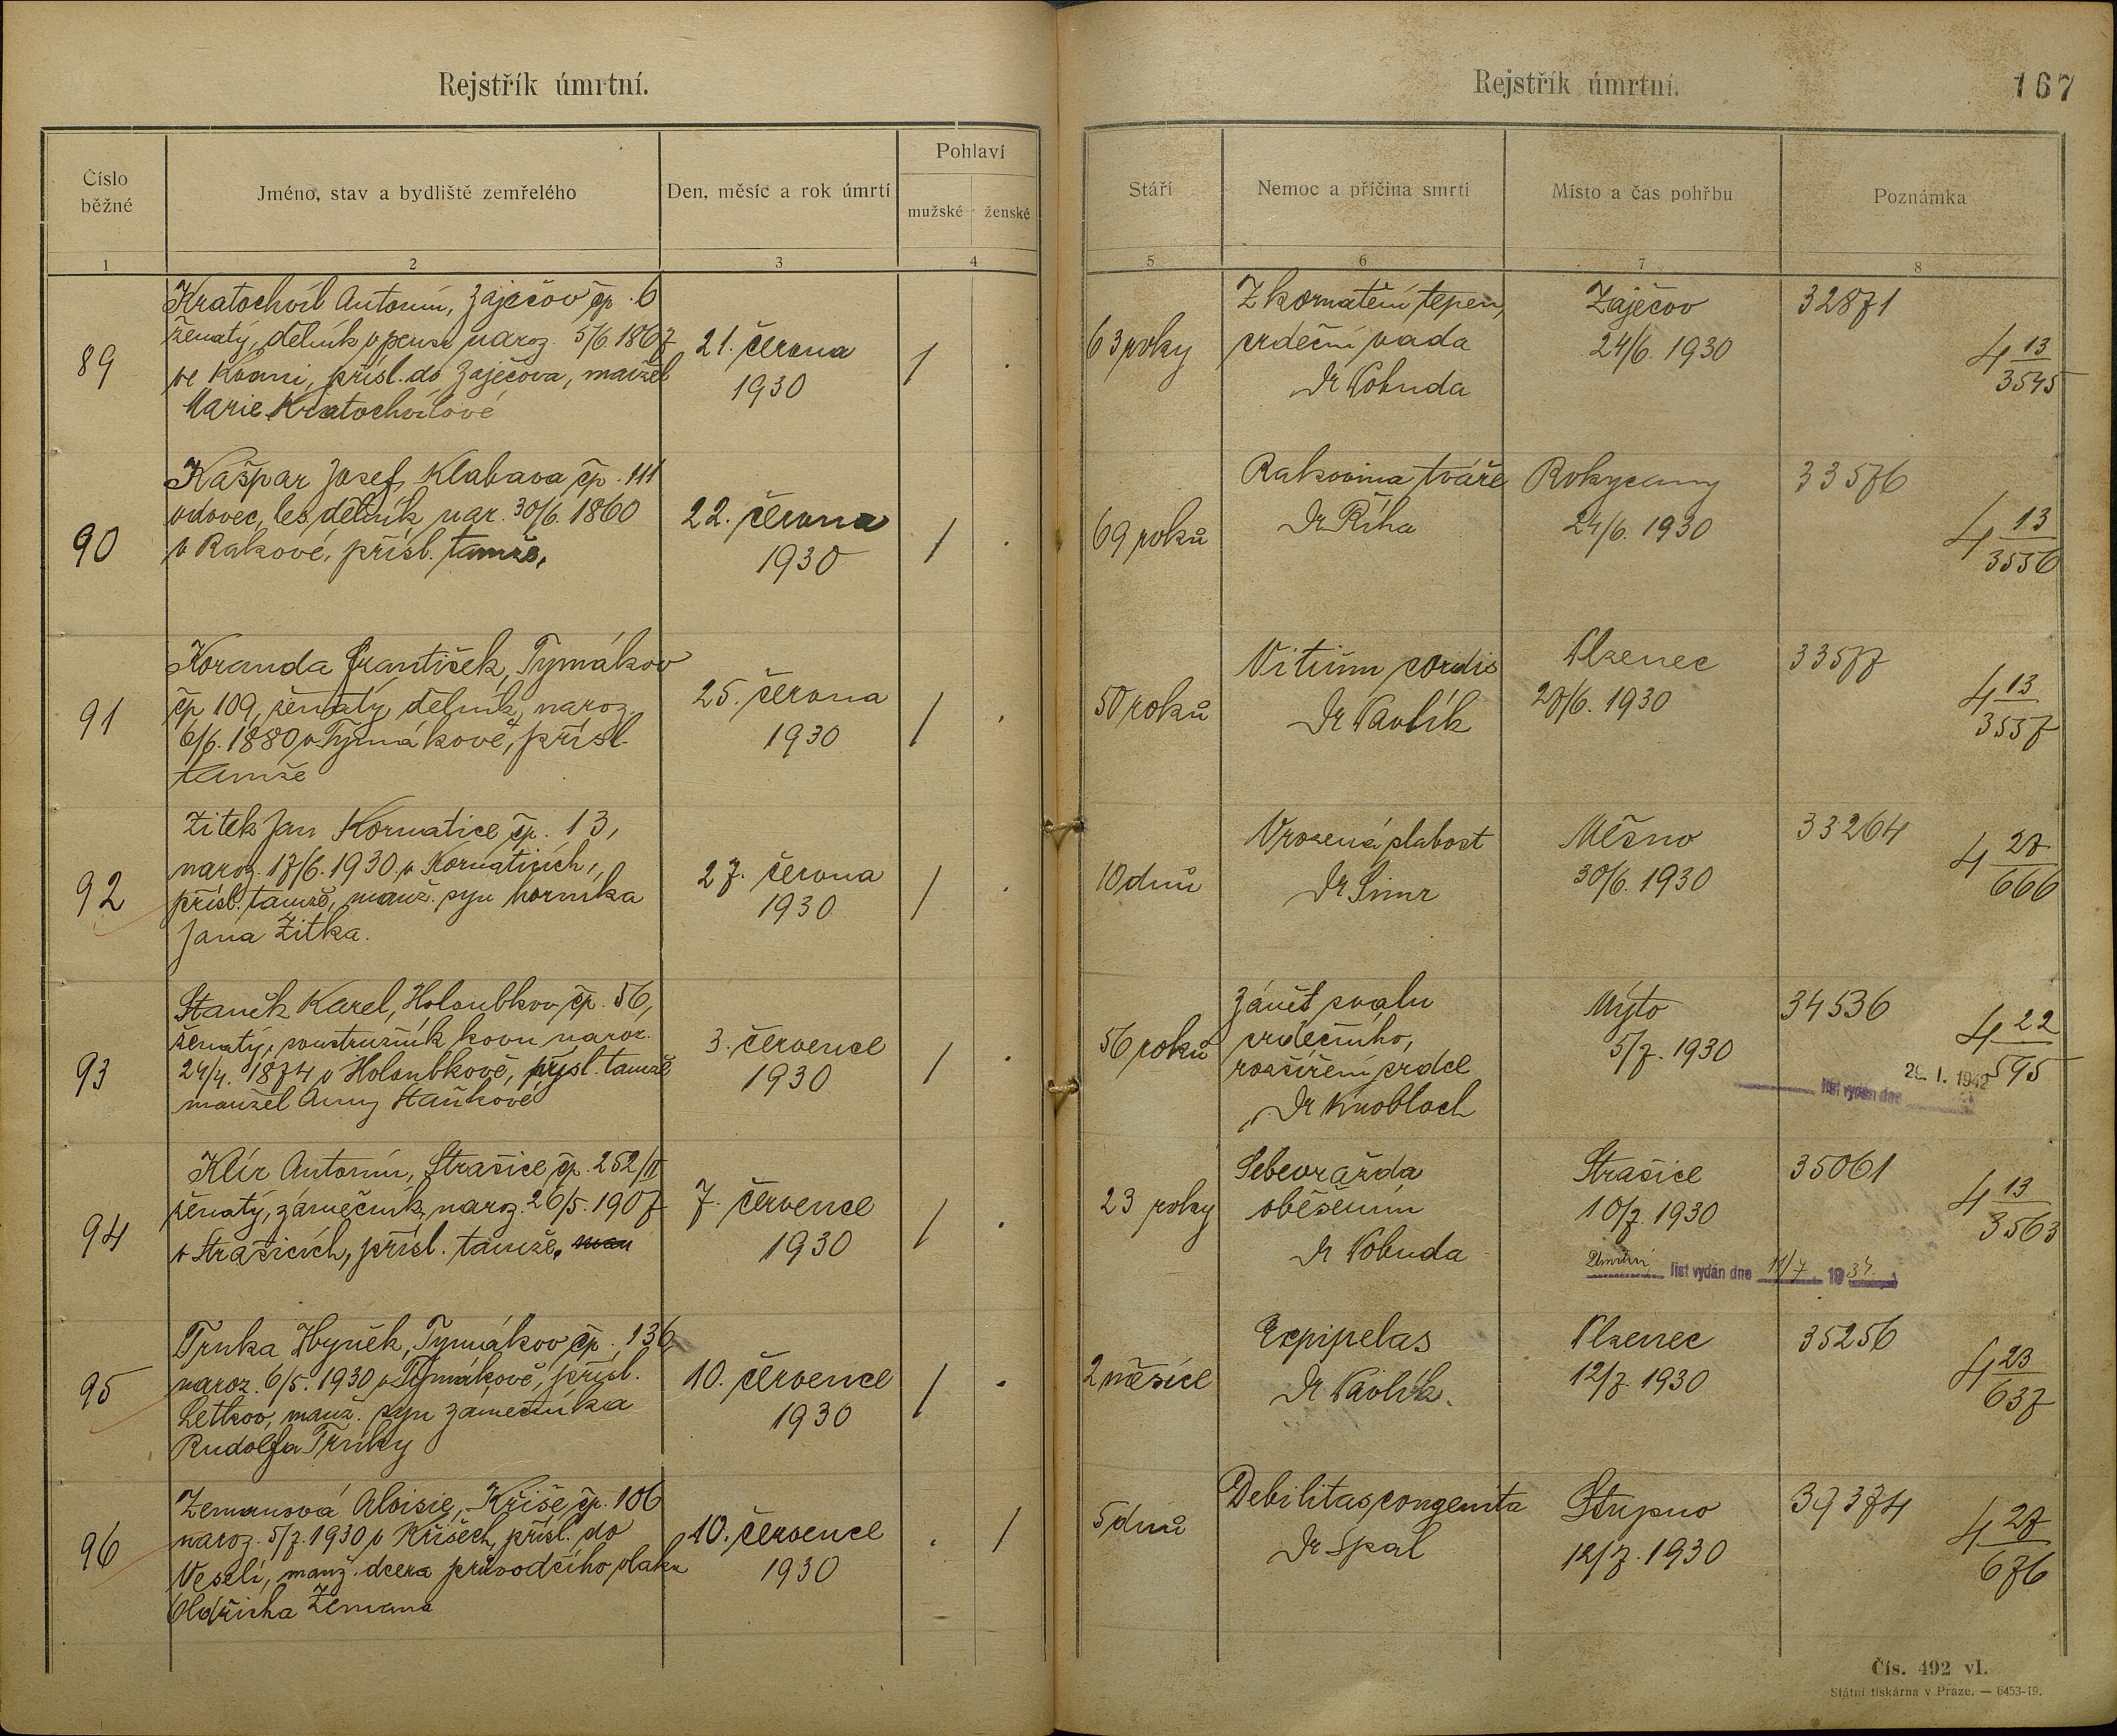 Rejstřík úmrtní.
Číslo běžné
Jméno, stav a bydliště zemřelého
Den, měsíc a rok úmrtí
Pohlaví
mužské
ženské
1
2
3
4
89
Kratochvíl Antonín, Zaječov čp. 6
ženatý, dělník v pensi naroz. 5/6. 1867
ve Kvani, přísl. do Zaječova, manžel
Marie Kratochvílové
21. června
1930
1
.
90
Kašpar Josef, Klabava čp. 111
vdovec, les. dělník nar. 30/6. 1860
v Rakové, přísl. tamže.
22. června
1930
1
.
91
Koranda František, Tymákov
čp 109, ženatý, dělník, naroz.
6/6. 1880 v Tymákově, přísl.
tamže
25. června
1930
1
.
92
Zitek Jan Kornatice čp. 13,
naroz. 17/6. 1930 v Kornaticích,
přísl. tamže, manž. syn horníka
Jana Zitka.
27. června
1930
1
.
93
Staněk Karel, Holoubkov čp. 56,
ženatý, soustružník kovu naroz.
24/4. 1874 v Holoubkově, přísl. tamže
manžel Anny Staňkové
3. července
1930
1
.
94
Klír Antonín, Strašice čp. 252/II
ženatý, zámečník, naroz. 26/5. 1907
v Strašicích, přísl. tamže, man
7. července
1930
1
.
95
Trnka Hyněk, Tymákov čp. 136,
naroz. 6/5. 1930 v Tymákově, přísl.
Letkov, manž. syn zámečníka
Rudolfa Trnky
10. července
1930
1
.
96
Zemanová Aloisie, Kříše čp. 106
naroz. 5/7. 1930 v Kříšech, přísl. do
Veselí, manž. dcera průvodčího vlaku
Oldřicha Zemana
10. července
1930
.
1
Rejstřík úmrtní.
167
Stáří
Nemoc a příčina smrti
Místo a čas pohřbu
Poznámka
5
6
7
8
63 roky
Zkornatění tepen,
srdeční vada
Dr Vobuda
Zaječov
24/6. 1930
32871
4 13/3545
69 roků
Rakovina tváře
Dr Říha
Rokycany
24/6. 1930
33576
4 13/3556
50 roků
Vitium cordis
Dr Pavlík
Plzenec
28/6. 1930
33577
4 13/3557
10 dnů
Vrozená slabost
Dr
Měšno
30/6. 1930
33264
4 27/666
56 roků
Zánět svalu
srdečního,
rozšíření srdce
Dr Knobloch
Mýto
5/7. 1930
34536
4 22/595
list vydán dne 29. I. 1942
23 roky
Sebevražda
oběšením
Dr Vobuda
Strašice
10/7. 1930
35061
4 13/3563
Úmrtní list vydán dne 11/7. 1934.
2 měsíce
Erpipelas
Dr Pavlík.
Plzenec
12/7. 1930
35256
4 23/637
5 dnů
Debilitas congenita
Dr Spal
Stupno
12/7. 1930
39374
4 27/676
Čís. 492 vI.
Státní tiskárna v Praze. — 6453-19.